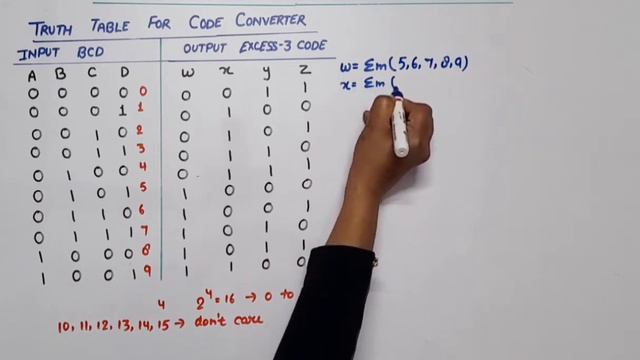 TRUTH TABLE FOR CODE CONVERTER
INPUT BCD OUTPUT EXCESS-3 CODE
A B C D w x y z
0 0 0 0 0 0 0 1 1
0 0 0 1 1 0 1 0 0
0 0 1 0 2 0 1 0 1
0 0 1 1 3 0 1 1 0
0 1 0 0 4 0 1 1 1
0 1 0 1 5 1 0 0 0
0 1 1 0 6 1 0 0 1
0 1 1 1 7 1 0 1 0
1 0 0 0 8 1 0 1 1
1 0 0 1 9 1 1 0 0
4 2⁴=16 → 0 to
10, 11, 12, 13, 14, 15 → don't care
w= Σm(5,6,7,8,9)
x= Σm (